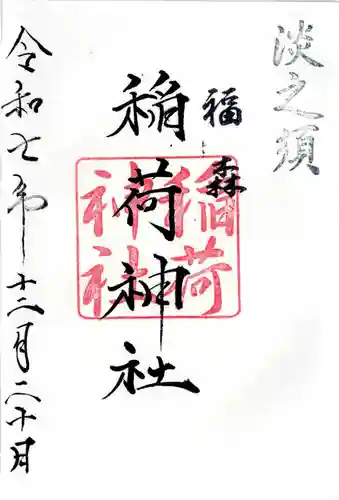 淡之須
福森
稲荷神社
稲荷
神社
令和七年十二月二十日